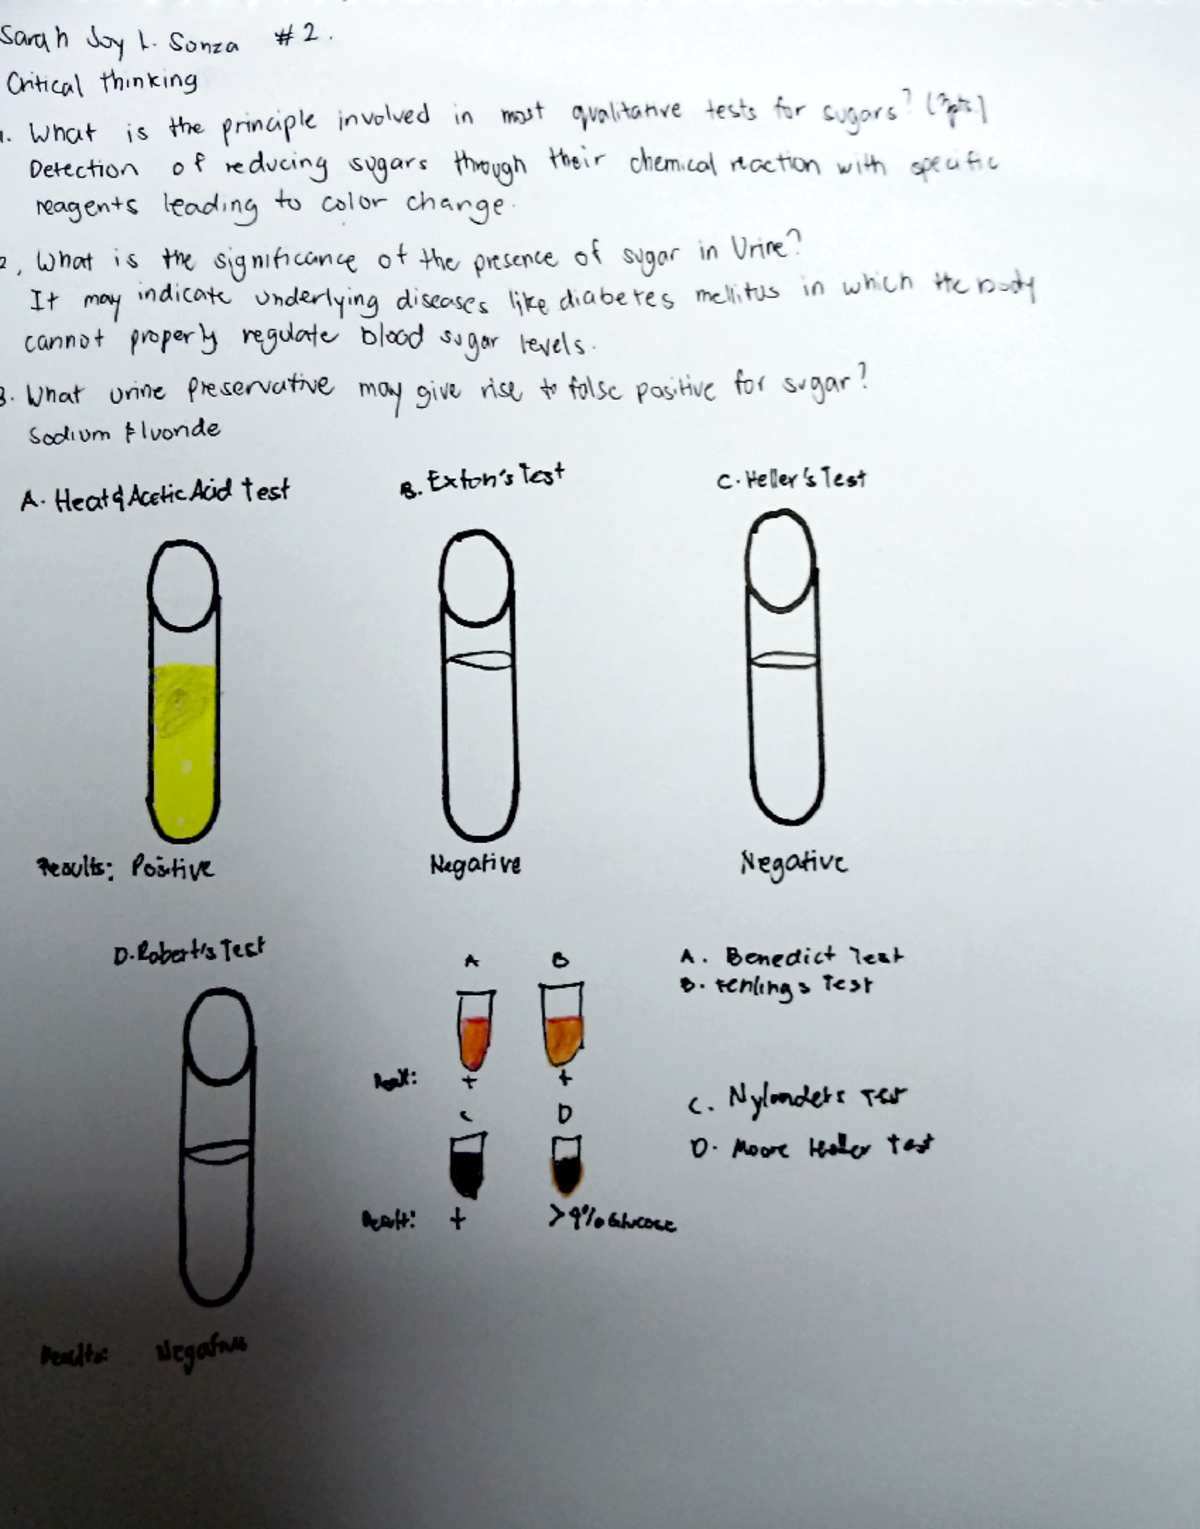 Sarah Joy L. Sonza #2.
Critical thinking
1. What is the principle involved in most qualitative tests for sugars?
Detection of reducing sugars through their chemical reaction with specific
reagents leading to color change.
2, What is the significance of the presence of sugar in Urine?
It may indicate underlying diseases like diabetes mellitus in which the body
cannot properly regulate blood sugar levels.
3. What urine preservative may give rise to false positive for sugar?
Sodium Fluoride
A. Heat & Acetic Acid test
B. Exton's Test
C. Heller's Test
Results: Positive
Negative
Negative
D. Robert's Test
A B
A. Benedict Test
B. Fehlings Test
Result: + +
C D
C. Nylanders Test
D. Moore Heller test
Result: + Glucose
Results: Negative